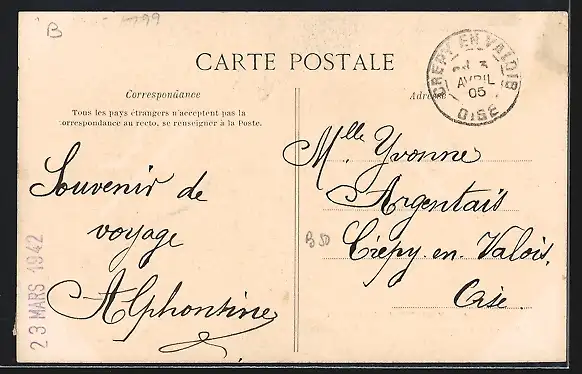 B
CARTE POSTALE
Correspondance
Tous les pays étrangers n'acceptent pas la
correspondance au recto, se renseigner à la Poste.
Souvenir de
voyage
Alphonsine
23 MARS 1942
Adresse
CRÉPY EN VALOIS
3
AVRIL
05
OISE
Mlle Yvonne
Argentais
B50
Crépy-en-Valois.
Oise.